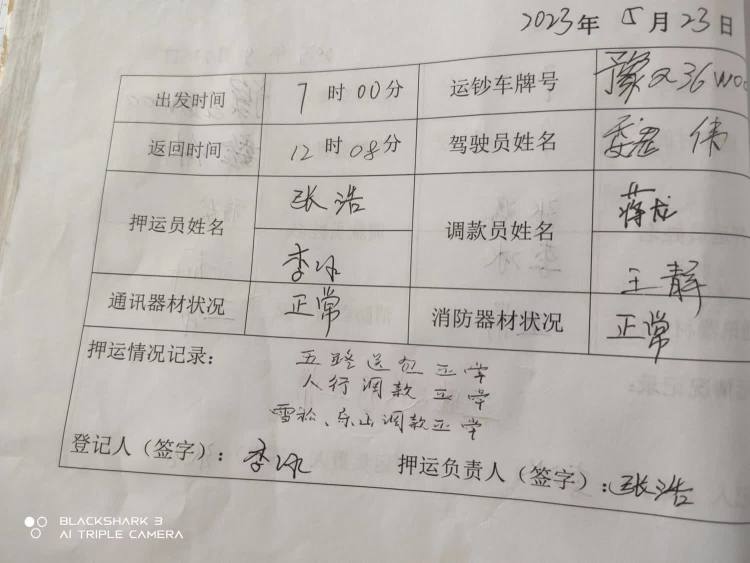 2023年 5月23日
出发时间 7时00分 运钞车牌号
返回时间 12时08分 驾驶员姓名 伟
押运员姓名 张浩 调款员姓名 蒋龙
李冰 王静
通讯器材状况 正常 消防器材状况 正常
押运情况记录: 五路送包正常
人行调款正常
调款正常
登记人(签字): 李冰 押运负责人(签字): 张浩
BLACKSHARK 3
AI TRIPLE CAMERA